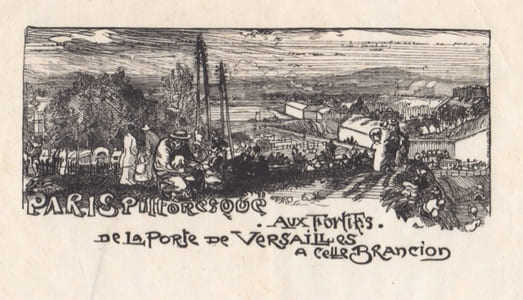 PARIS PITTORESQUE
AUX FORTIFS.
DE LA PORTE DE VERSAILLES
A CELLE BRANCION